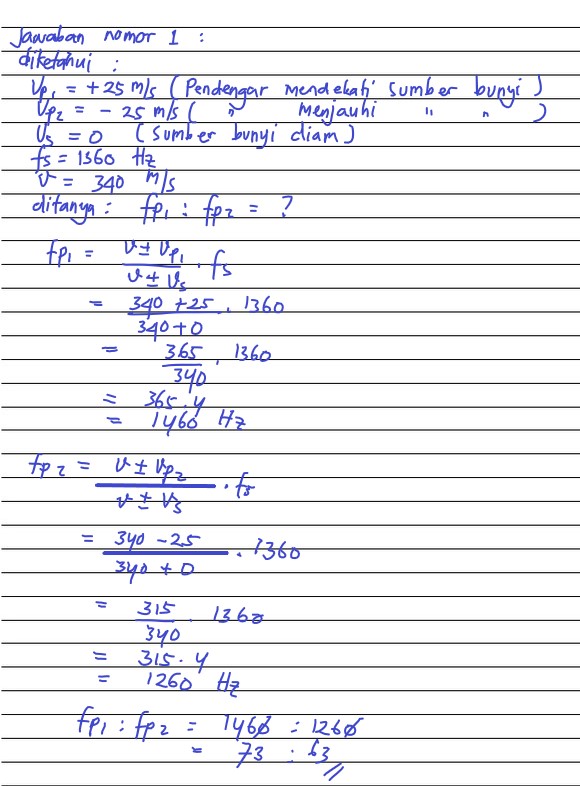 Jawaban nomor 1 :
diketahui :
Vp₁ = +25 m/s ( Pendengar mendekati sumber bunyi )
Vp₂ = - 25 m/s ( " menjauhi " " )
Vs = 0 ( Sumber bunyi diam )
fs = 1360 Hz
v = 340 m/s
ditanya : fp₁ : fp₂ = ?
fp₁ = (v ± Vp₁)/(v ± Vs) . fs
= (340 + 25)/(340 + 0) . 1360
= 365/340 . 1360
= 365 . 4
= 1460 Hz
fp₂ = (v ± Vp₂)/(v ± Vs) . fs
= (340 - 25)/(340 + 0) . 1360
= 315/340 . 1360
= 315 . 4
= 1260 Hz
fp₁ : fp₂ = 1460 : 1260
= 73 : 63 //